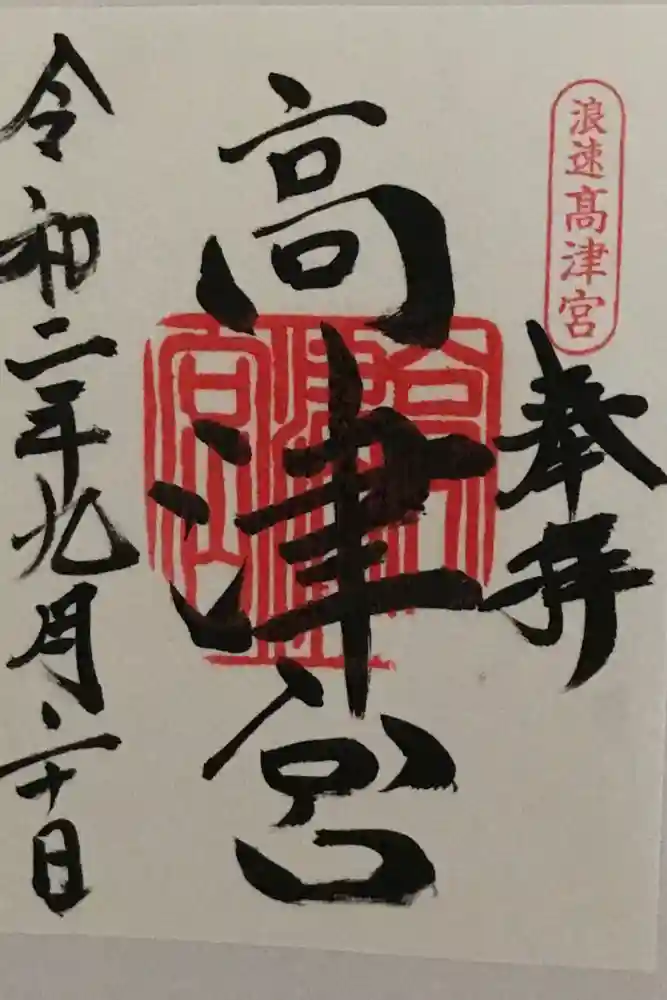 浪速髙津宮
奉拝
高津宮
令和二年九月二十日